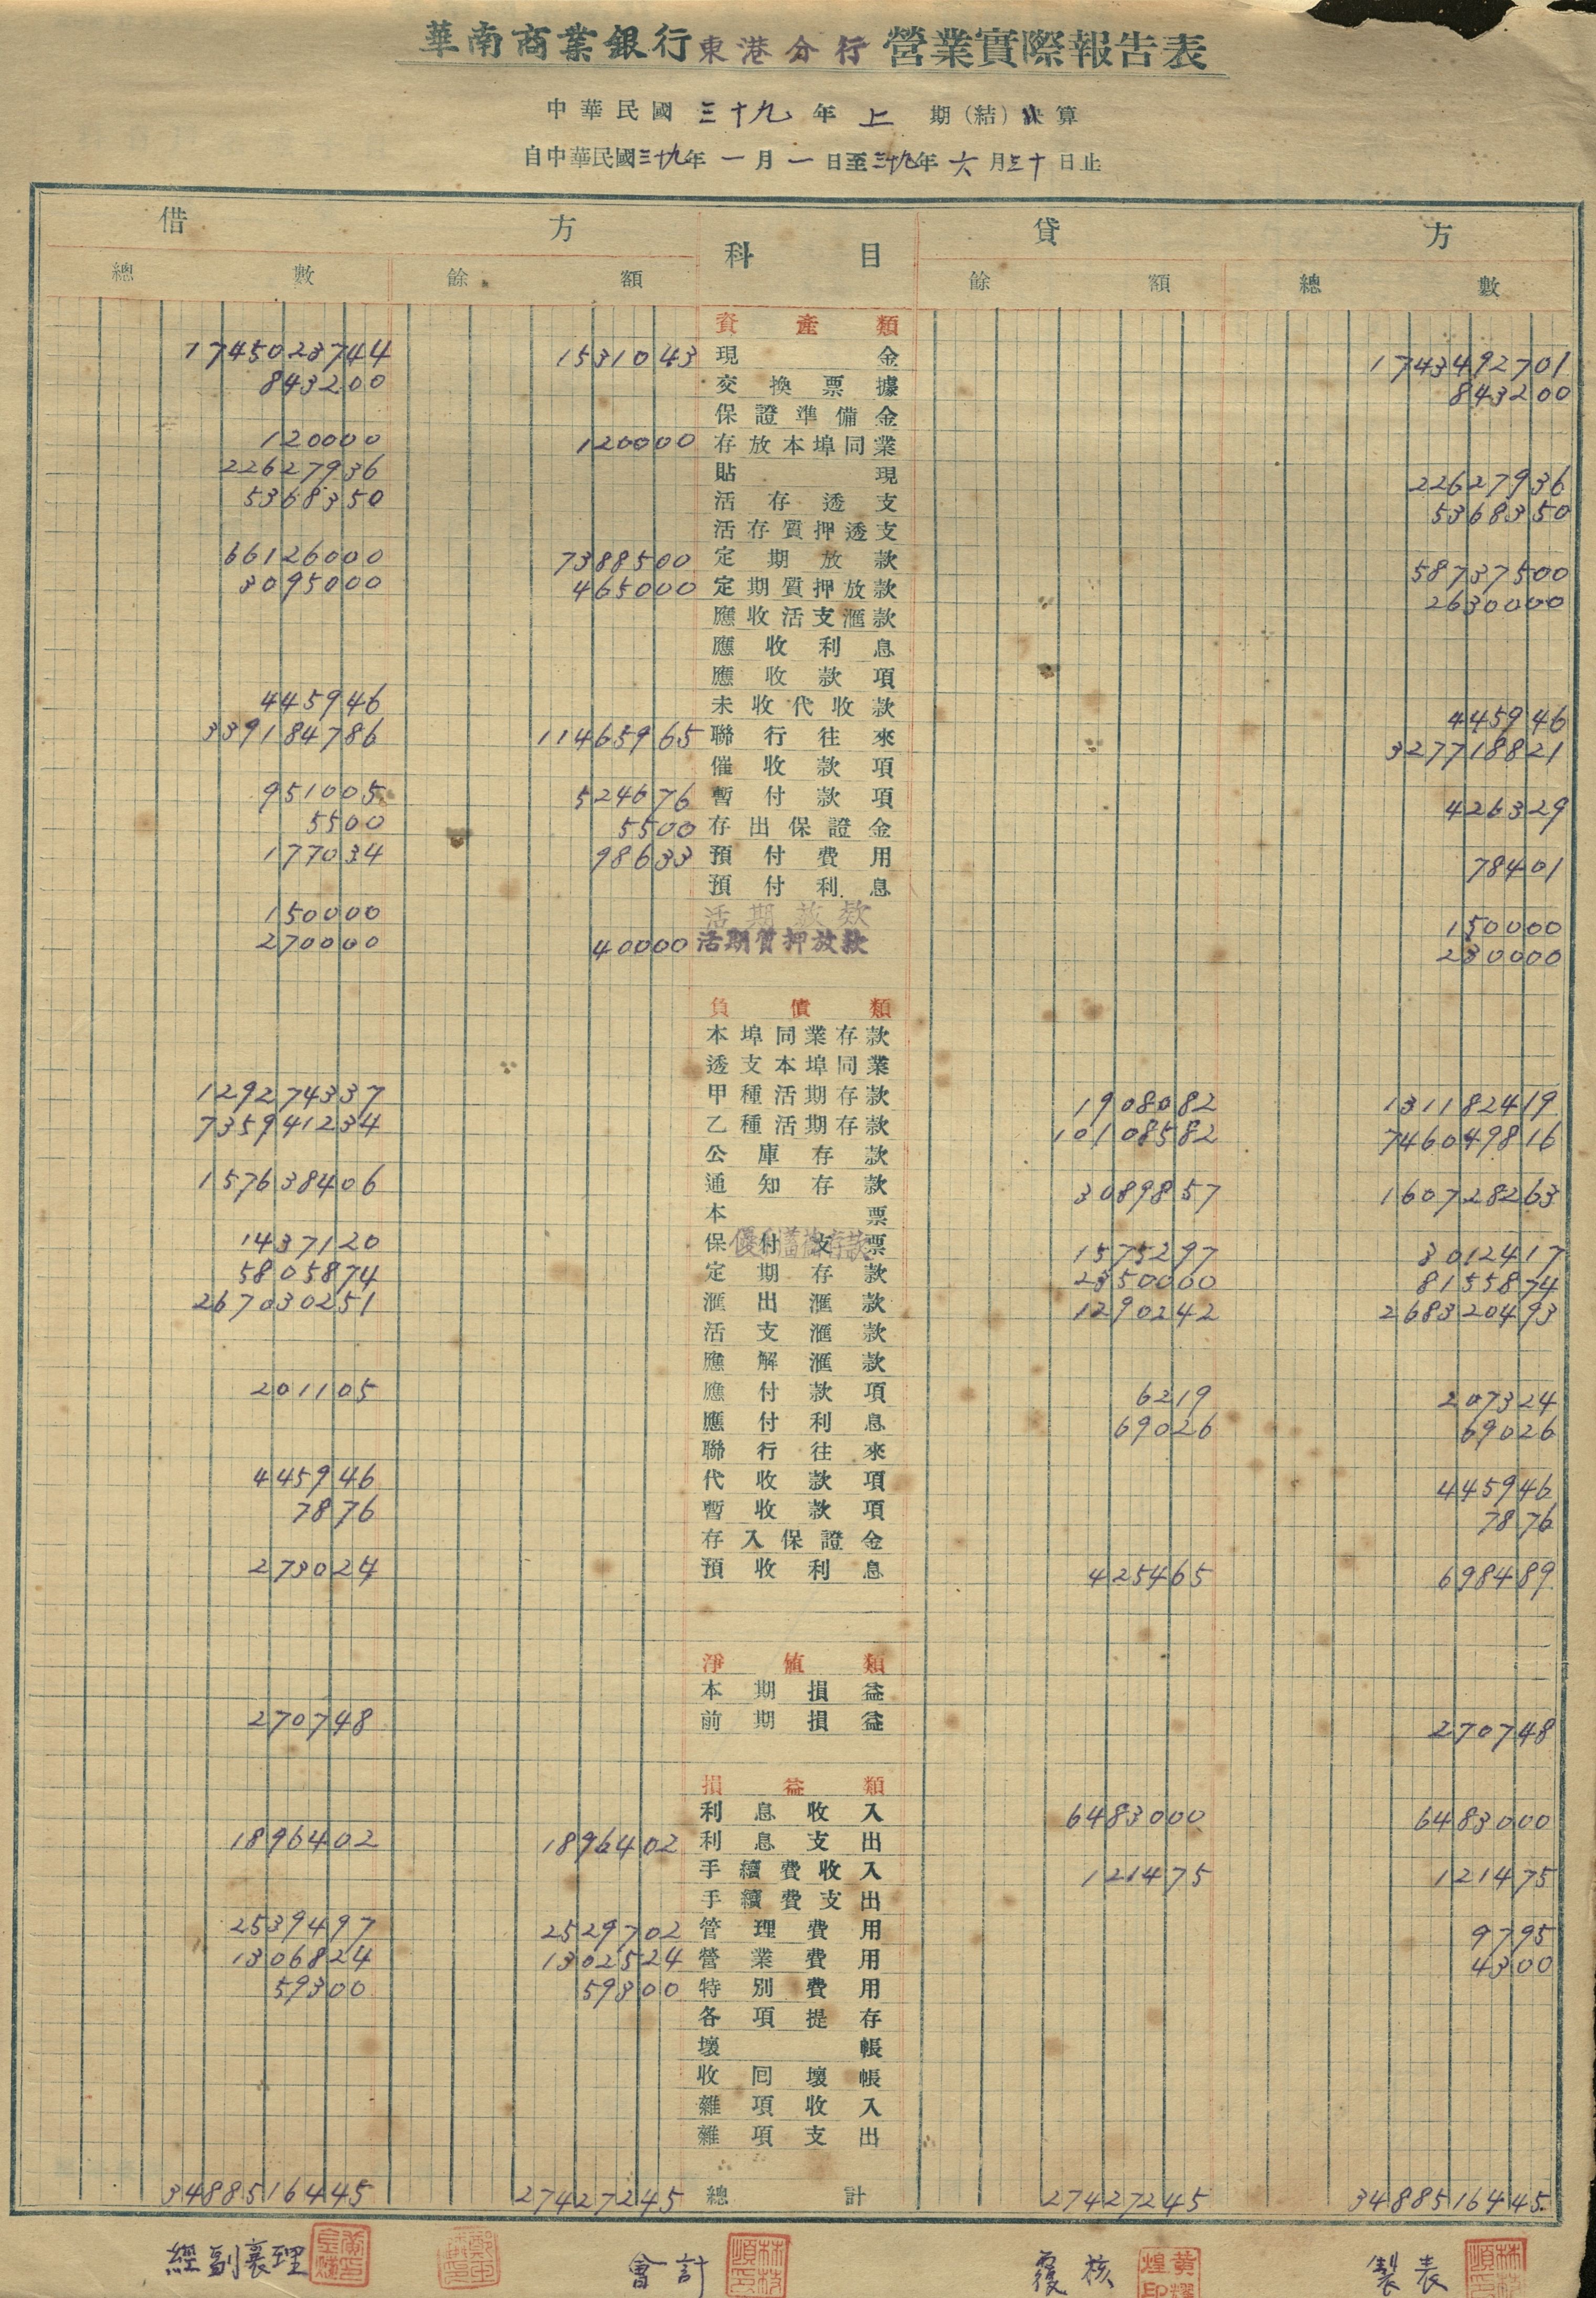 華南商業銀行東港分行營業實際報告表
中華民國三十九年上期(結)決算
自中華民國三十九年一月一日至三十九年六月三十日止
借方 科目 貸方
總數 餘額 餘額 總數
資產類
1745023744 1531043 現金 1743492701
843200 交換票據 843200
保證準備金
120000 120000 存放本埠同業
22627936 貼現 22627936
5368350 活存透支 5368350
活存質押透支
66126000 7388500 定期放款 58737500
3095000 465000 定期質押放款 2630000
應收活支滙款
應收利息
應收款項
445946 未收代收款 445946
339184786 11465965 聯行往來 327718821
催收款項
951005 524676 暫付款項 426329
5500 5500 存出保證金
177034 98633 預付費用 78401
預付利息
150000 活期放款 150000
270000 40000 活期質押放款 230000
負債類
本埠同業存款
透支本埠同業
129274337 甲種活期存款 1908082 131182419
735941234 乙種活期存款 10108582 746049816
公庫存款
157638406 通知存款 3089857 160728263
本票
1437120 保付支票 優利蓄儲存款 1575297 3012417
5805874 定期存款 2350000 8155874
267030251 滙出滙款 1290242 268320493
活支滙款
應解滙款
201105 應付款項 6219 207324
應付利息 69026 69026
聯行往來
445946 代收款項 445946
7876 暫收款項 7876
存入保證金
273024 預收利息 425465 698489
淨值類
本期損益
270748 前期損益 270748
損益類
利息收入 6483000 6483000
1896402 1896402 利息支出
手續費收入 121475 121475
手續費支出
2539497 2529702 管理費用 9795
1306824 1302524 營業費用 4300
59300 59300 特別費用
各項提存
壞帳
收回壞帳
雜項收入
雜項支出
3488516445 27427245 總計 27427245 3488516445
經副襄理 會計 覆核 製表
林順枝印 黃煌印 林順枝印